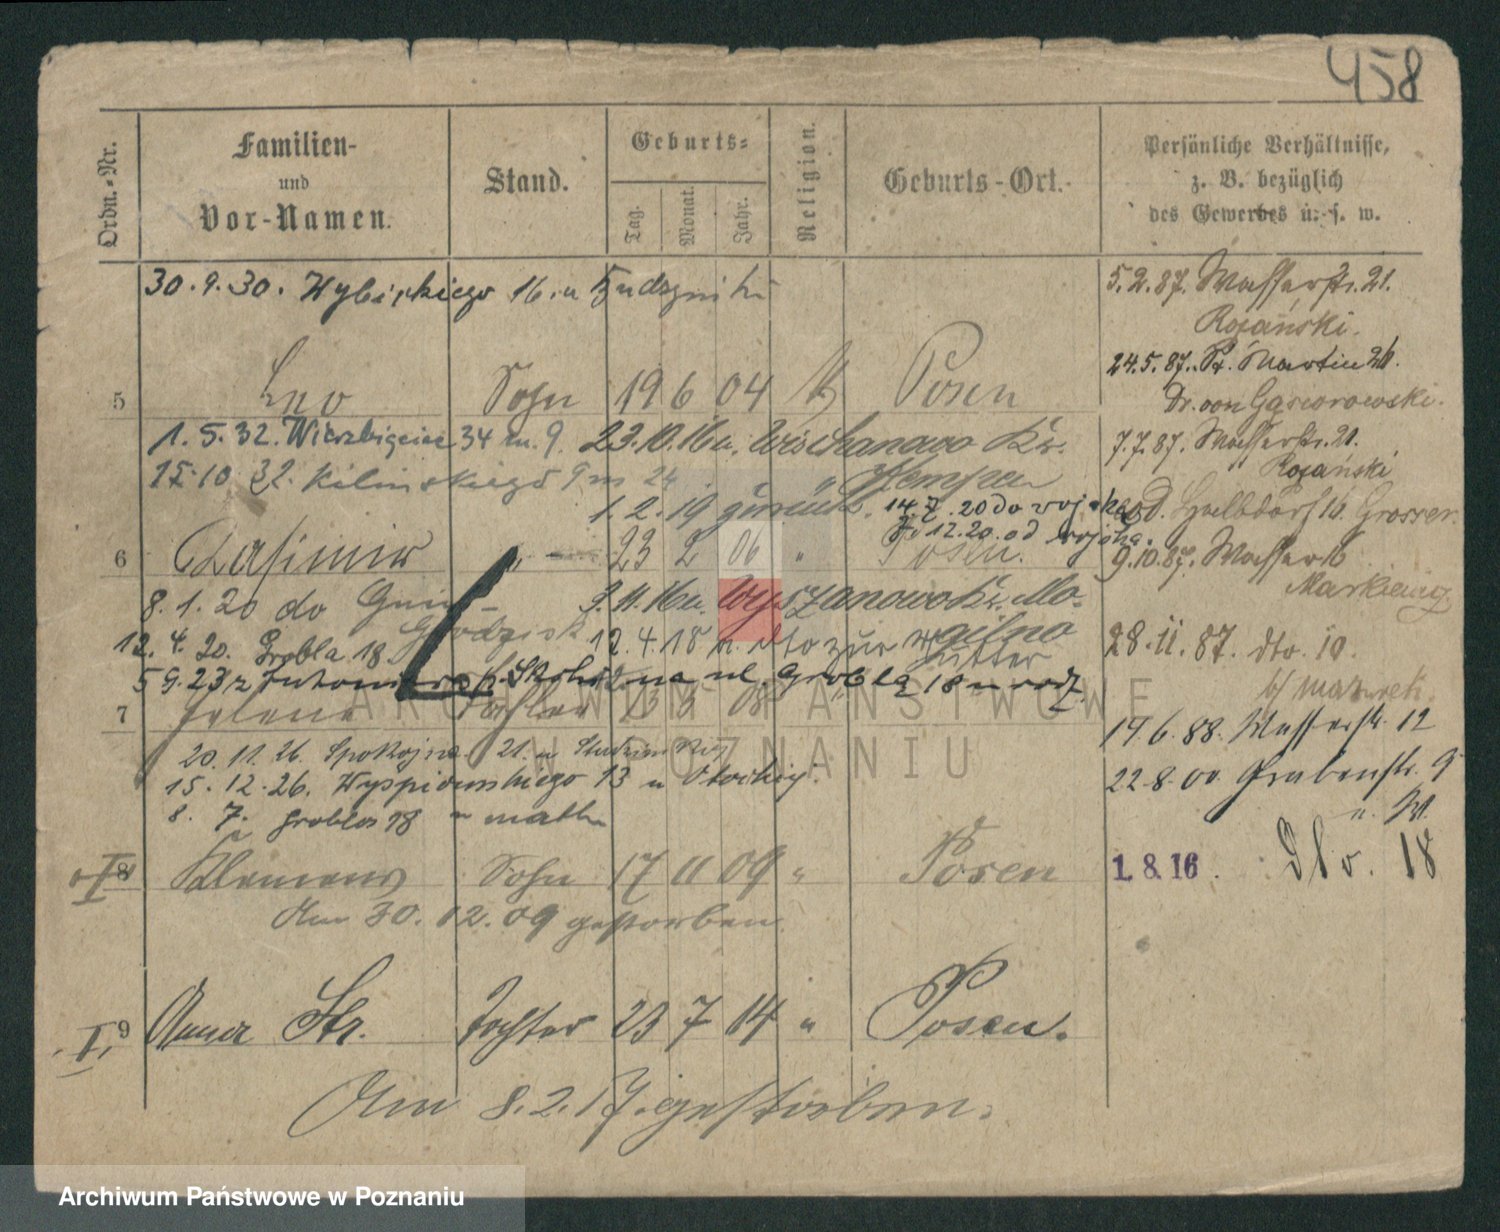 458
Ordn.-Nr.
Familien-
und
Vor-Namen.
Stand.
Geburts-
Tag.
Monat.
Jahr.
Religion.
Geburts-Ort.
Persönliche Verhältnisse,
z. B. bezüglich
des Gewerbes u. s. w.
30.9.30. Wybickiego 16. u
5.2.87. Wasserstr. 21.
Rojański.
24.5.87. St. Martin 26.
5 Leo Sohn 19 6 04 Posen
Dr. von Gąsiorowski.
1.5.32. Wierzbięcice 34 m. 9. 23.10.16 u. Kr.
7.7.87. Wasserstr. 21.
Rojański
15.10.32. Kilińskiego 9 m 24 " Kempen
1.2.19 zurück. 14.7.20 do wojska
Halbdorf 16. Grosser.
12.20. od wojska.
6 Kasimir " 23 2 06 " Posen.
9.10.87. Wasser 16
Markiewicz
8.1.20 do
9.11.16 u. Wyszanowo Kr. Mo-
gilno
12.4.20. Grobla 18. Grodzisk 12.4.18 v. dto zur
Mutter
28.11.87. dto. 10.
b/
5.9.23 z ul. Grobla 18 u rodz.
7 Helene Tochter 13 3 08 "
19.6.88. Wasserstr. 12
20.11.26. Spokojna 21. u
15.12.26. Wyspiańskiego 13 u
22.8.00. Grabenstr. 9
u. W.
8. 7. Grobla 18 u matki
I 8 Klemens Sohn 17 11 09 " Posen
1.8.16. Dto. 18
Am 30.12.09 gestorben
I. 9 Anna Tochter 23 7 14 " Posen.
Am 8.2.17. gestorben.
ARCHIWUM PAŃSTWOWE
W POZNANIU
Archiwum Państwowe w Poznaniu